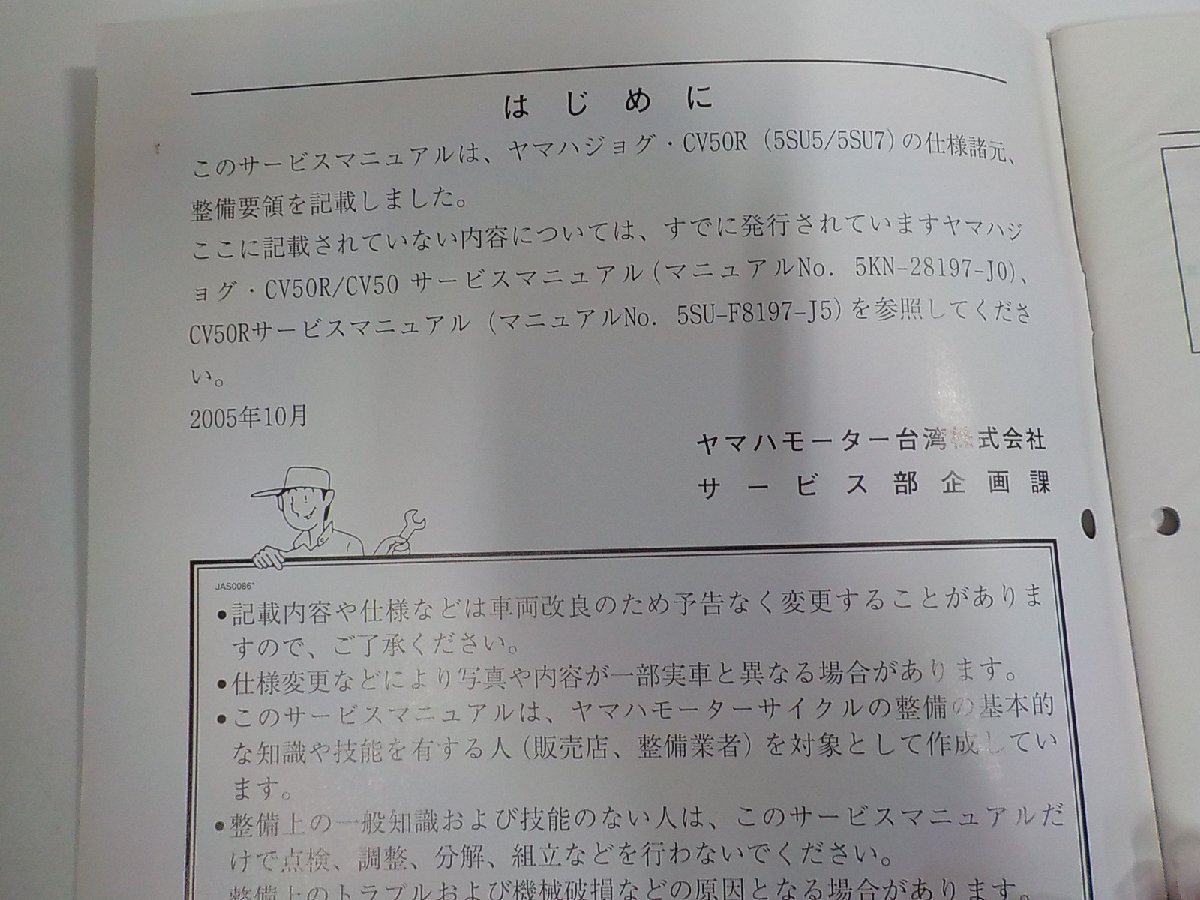 はじめに
このサービスマニュアルは、ヤマハジョグ・CV50R (5SU5/5SU7)の仕様諸元、
整備要領を記載しました。
ここに記載されていない内容については、すでに発行されていますヤマハジ
ョグ・CV50R/CV50 サービスマニュアル(マニュアルNo. 5KN-28197-J0)、
CV50Rサービスマニュアル (マニュアルNo. 5SU-F8197-J5)を参照してくださ
い。
2005年10月
ヤマハモーター台湾株式会社
サービス部企画課
●記載内容や仕様などは車両改良のため予告なく変更することがありま
すので、ご了承ください。
●仕様変更などにより写真や内容が一部実車と異なる場合があります。
●このサービスマニュアルは、ヤマハモーターサイクルの整備の基本的
な知識や技能を有する人(販売店、整備業者)を対象として作成してい
ます。
●整備上の一般知識および技能のない人は、このサービスマニュアルだ
けで点検、調整、分解、組立などを行わないでください。
整備上のトラブルおよび機械破損などの原因となる場合があります。